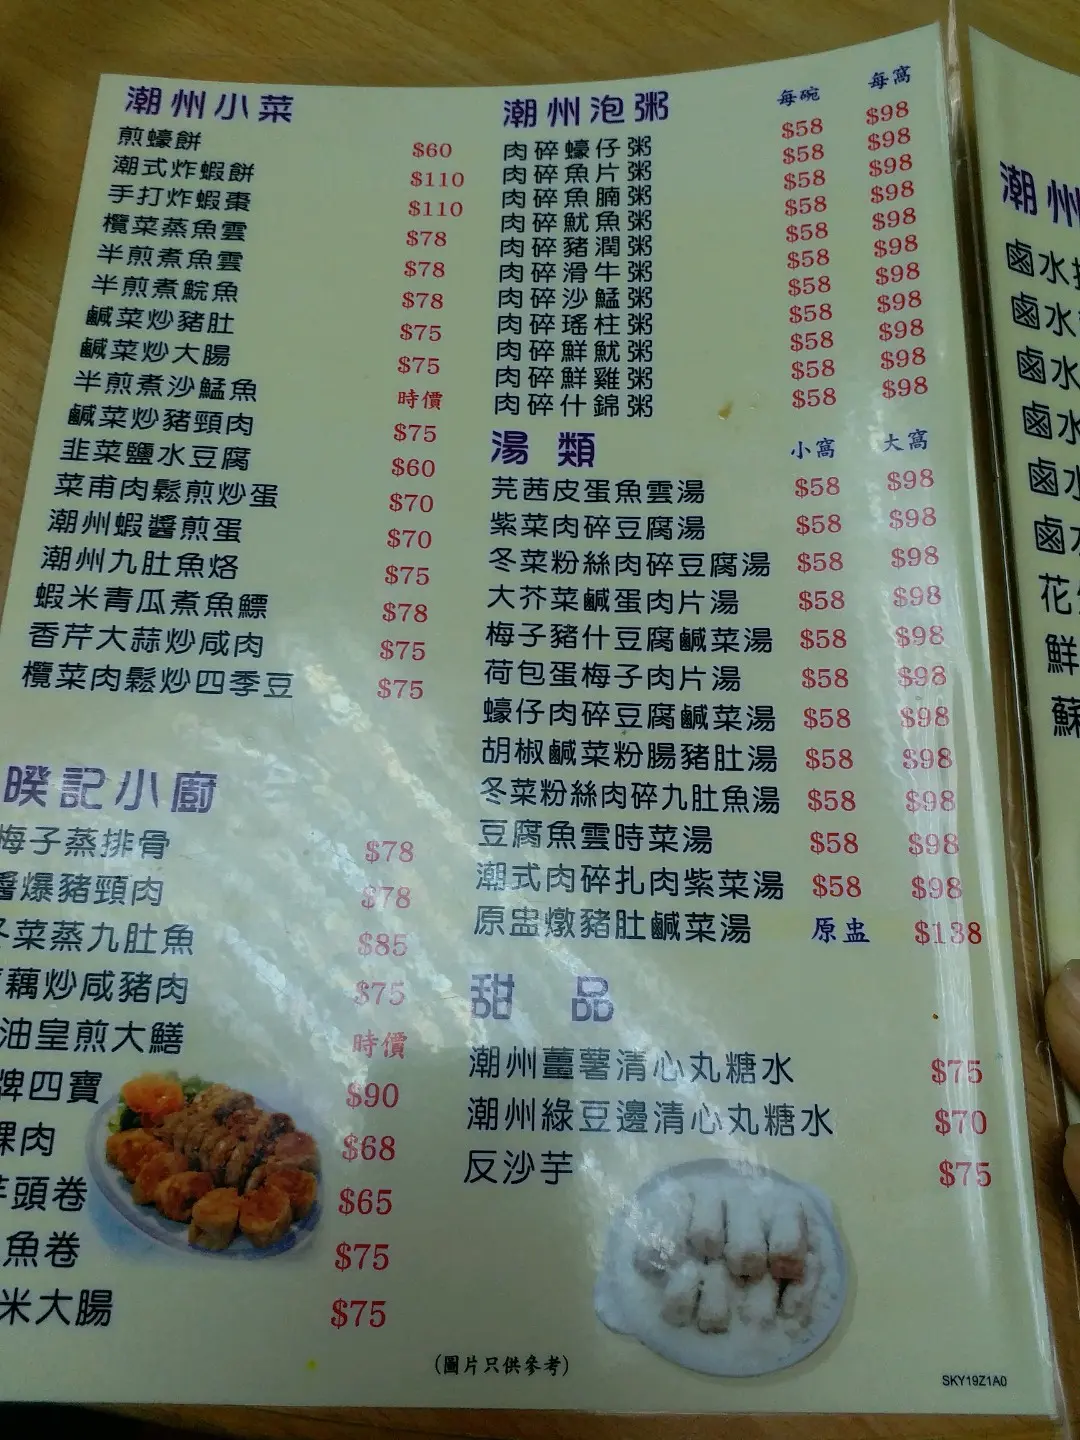 潮州小菜
煎蠔餅 $60
潮式炸蝦餅 $110
手打炸蝦棗 $110
欖菜蒸魚雲 $78
半煎煮魚雲 $78
半煎煮鯇魚 $78
鹹菜炒豬肚 $75
鹹菜炒大腸 $75
半煎煮沙鯭魚 時價
鹹菜炒豬頸肉 $75
韭菜鹽水豆腐 $60
菜甫肉鬆煎炒蛋 $70
潮州蝦醬煎蛋 $70
潮州九肚魚烙 $75
蝦米青瓜煮魚鰾 $78
香芹大蒜炒咸肉 $75
欖菜肉鬆炒四季豆 $75
暌記小廚
梅子蒸排骨 $78
醬爆豬頸肉 $78
冬菜蒸九肚魚 $85
藕炒咸豬肉 $75
油皇煎大鱔 時價
牌四寶 $90
粿肉 $68
芋頭卷 $65
魚卷 $75
米大腸 $75
潮州泡粥 每碗 每窩
肉碎蠔仔粥 $58 $98
肉碎魚片粥 $58 $98
肉碎魚腩粥 $58 $98
肉碎魷魚粥 $58 $98
肉碎豬潤粥 $58 $98
肉碎滑牛粥 $58 $98
肉碎沙鯭粥 $58 $98
肉碎瑤柱粥 $58 $98
肉碎鮮魷粥 $58 $98
肉碎鮮雞粥 $58 $98
肉碎什錦粥 $58 $98
湯類 小窩 大窩
芫茜皮蛋魚雲湯 $58 $98
紫菜肉碎豆腐湯 $58 $98
冬菜粉絲肉碎豆腐湯 $58 $98
大芥菜鹹蛋肉片湯 $58 $98
梅子豬什豆腐鹹菜湯 $58 $98
荷包蛋梅子肉片湯 $58 $98
蠔仔肉碎豆腐鹹菜湯 $58 $98
胡椒鹹菜粉腸豬肚湯 $58 $98
冬菜粉絲肉碎九肚魚湯 $58 $98
豆腐魚雲時菜湯 $58 $98
潮式肉碎扎肉紫菜湯 $58 $98
原盅燉豬肚鹹菜湯 原盅 $138
甜品
潮州薑薯清心丸糖水 $75
潮州綠豆邊清心丸糖水 $70
反沙芋 $75
(圖片只供參考)
SKY19Z1A0
潮州
鹵水
鹵水
鹵水
鹵水
鹵水
鹵水
花
鮮
蘇